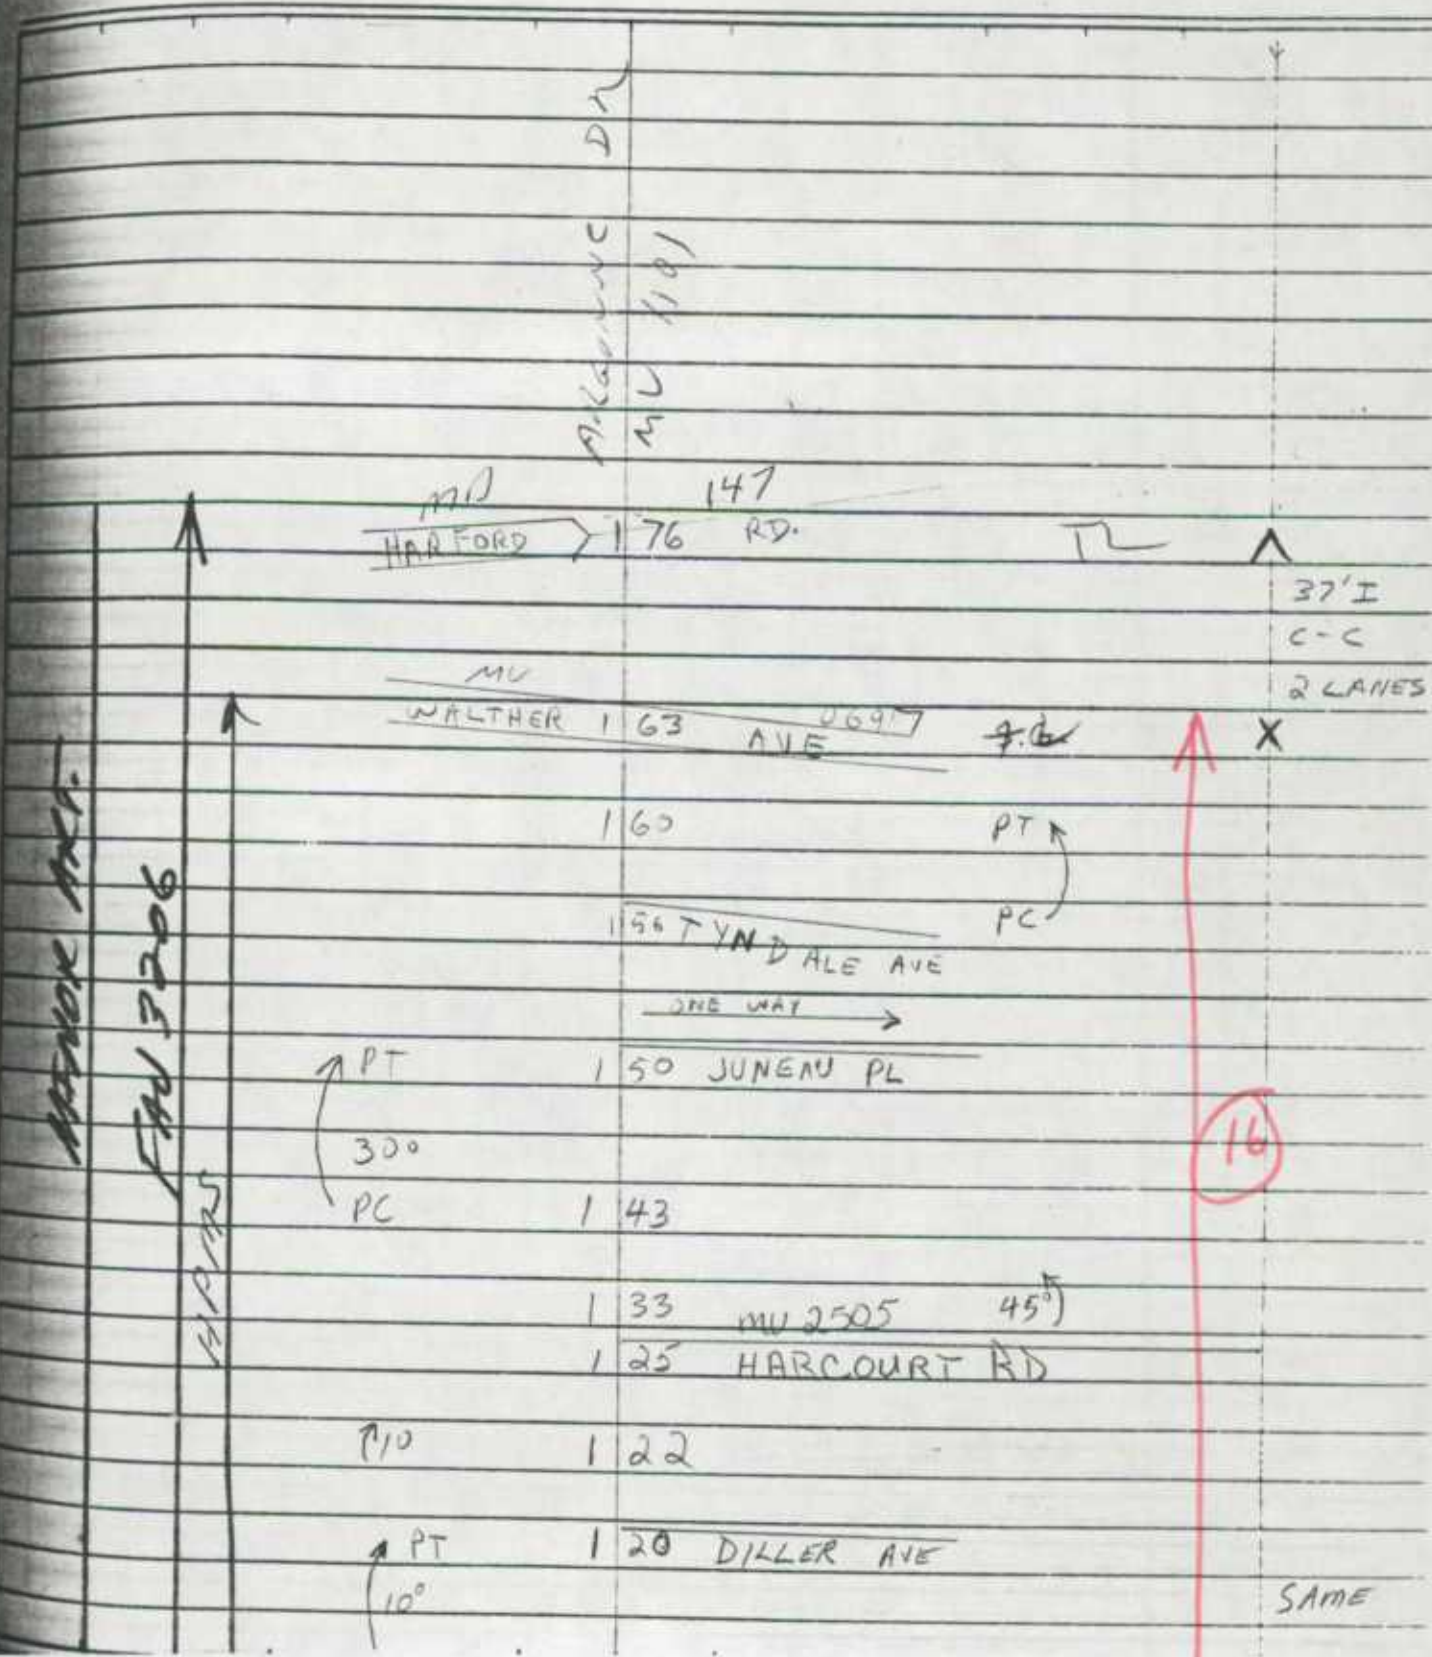 DR
MU 1101
MD 147
HARFORD 1 76 RD. TL
37' I
C-C
2 LANES
MU 0697
WALTHER 1 63 AVE X
1 60 PT
1 56 TYNDALE AVE PC
ONE WAY
PT 1 50 JUNEAU PL
30°
PC 1 43
16
1 33 MU 2505 45°
1 25 HARCOURT RD
10 1 22
PT 1 20 DILLER AVE
10°
SAME
MINOR ART.
FAU 3206
HPMS